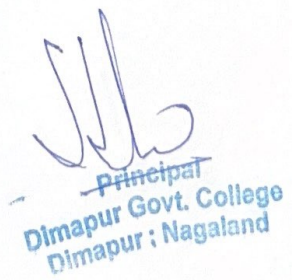 Principal
Dimapur Govt. College
Dimapur ; Nagaland